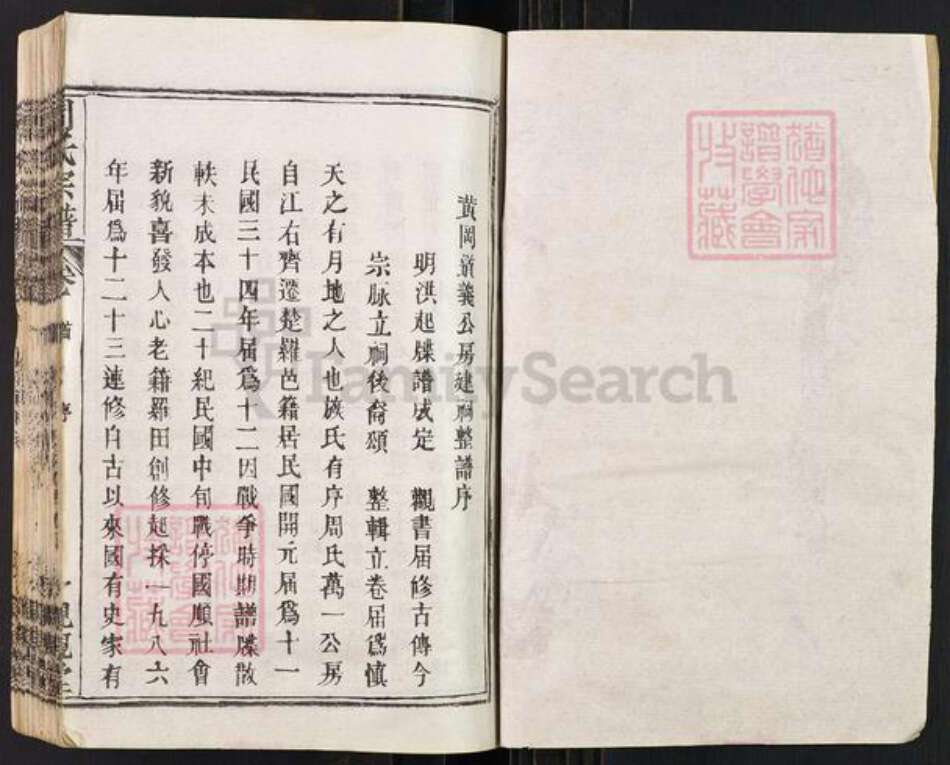 黃岡顯義公房建祠整譜序
明洪起牒譜成定　觀書届修古傳今
崇脉立祠後裔頌　整輯立卷届爲慎
天之有月地之人也族氏有序周氏萬一公房
自江右齊遷楚羅邑籍居民國開元届爲十一
民國三十四年届爲十二因戰爭時期譜牒散
軼未成本也二十紀民國中旬戰停國順社會
新貌喜發人心老籍羅田創修起採一九八六
年届爲十二十三連修自古以來國有史家有
周氏宗譜
卷首
序
FamilySearch
譜學會
收藏